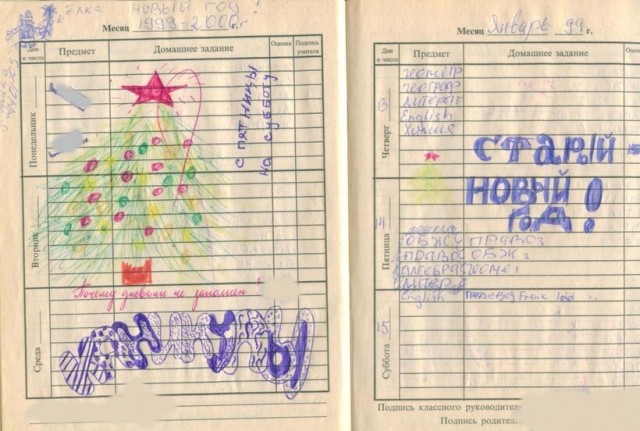 Ёлка
НОВЫЙ ГОД!
Месяц 1999-2000 г.
Дни и числа
Предмет
Домашнее задание
Оценка
Подпись учителя
Понедельник
С ПЯТНИЦЫ
НА СУББОТУ
Вторник
Почему дневник не заполнен
Среда
КАНИКУЛЫ
Месяц Январь 99 г.
Дни и числа
Предмет
Домашнее задание
13
Четверг
геометр
географ
литерат
English
Химия
СТАРЫЙ
НОВЫЙ
ГОД!
14
Пятница
ОБЖ
алгебра
English
15
Суббота
Подпись классного руководителя
Подпись родител